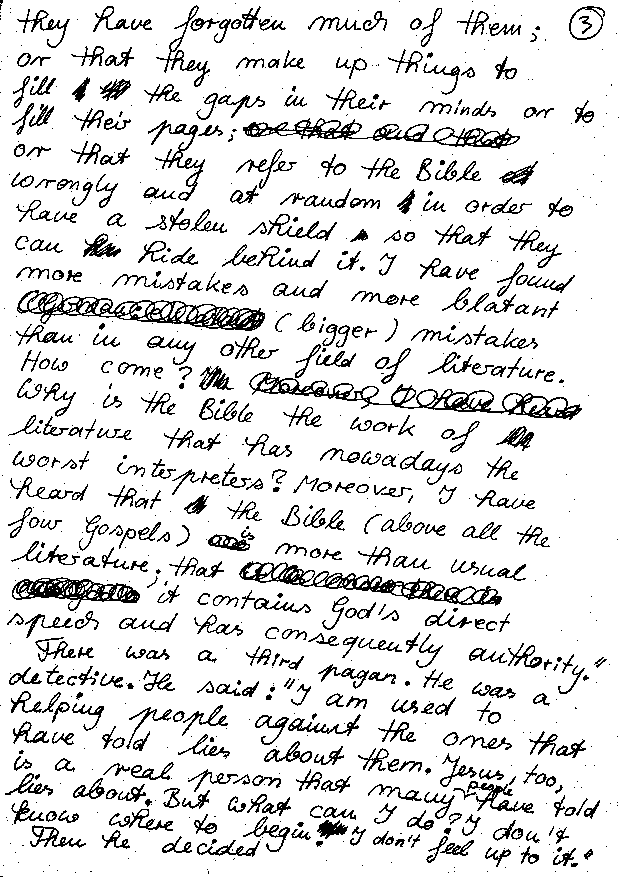 they have forgotten much of them; ③
or that they make up things to
fill the gaps in their minds or to
fill their pages;
or that they refer to the Bible
wrongly and at random in order to
have a stolen shield so that they
can hide behind it. I have found
more mistakes and more blatant
(bigger) mistakes
than in any other field of literature.
How come? Moreover, I have heard
Why is the Bible the work of
literature that has nowadays the
worst interpreters? Moreover, I have
heard that the Bible (above all the
four Gospels) is more than usual
literature; that
it contains God's direct
speech and has consequently authority."
There was a third pagan. He was a
detective. He said: "I am used to
helping people against the ones that
have told lies about them. Jesus, too,
is a real person that many people have told
lies about. But what can I do? I don't
know where to begin. I don't feel up to it."
Then he decided